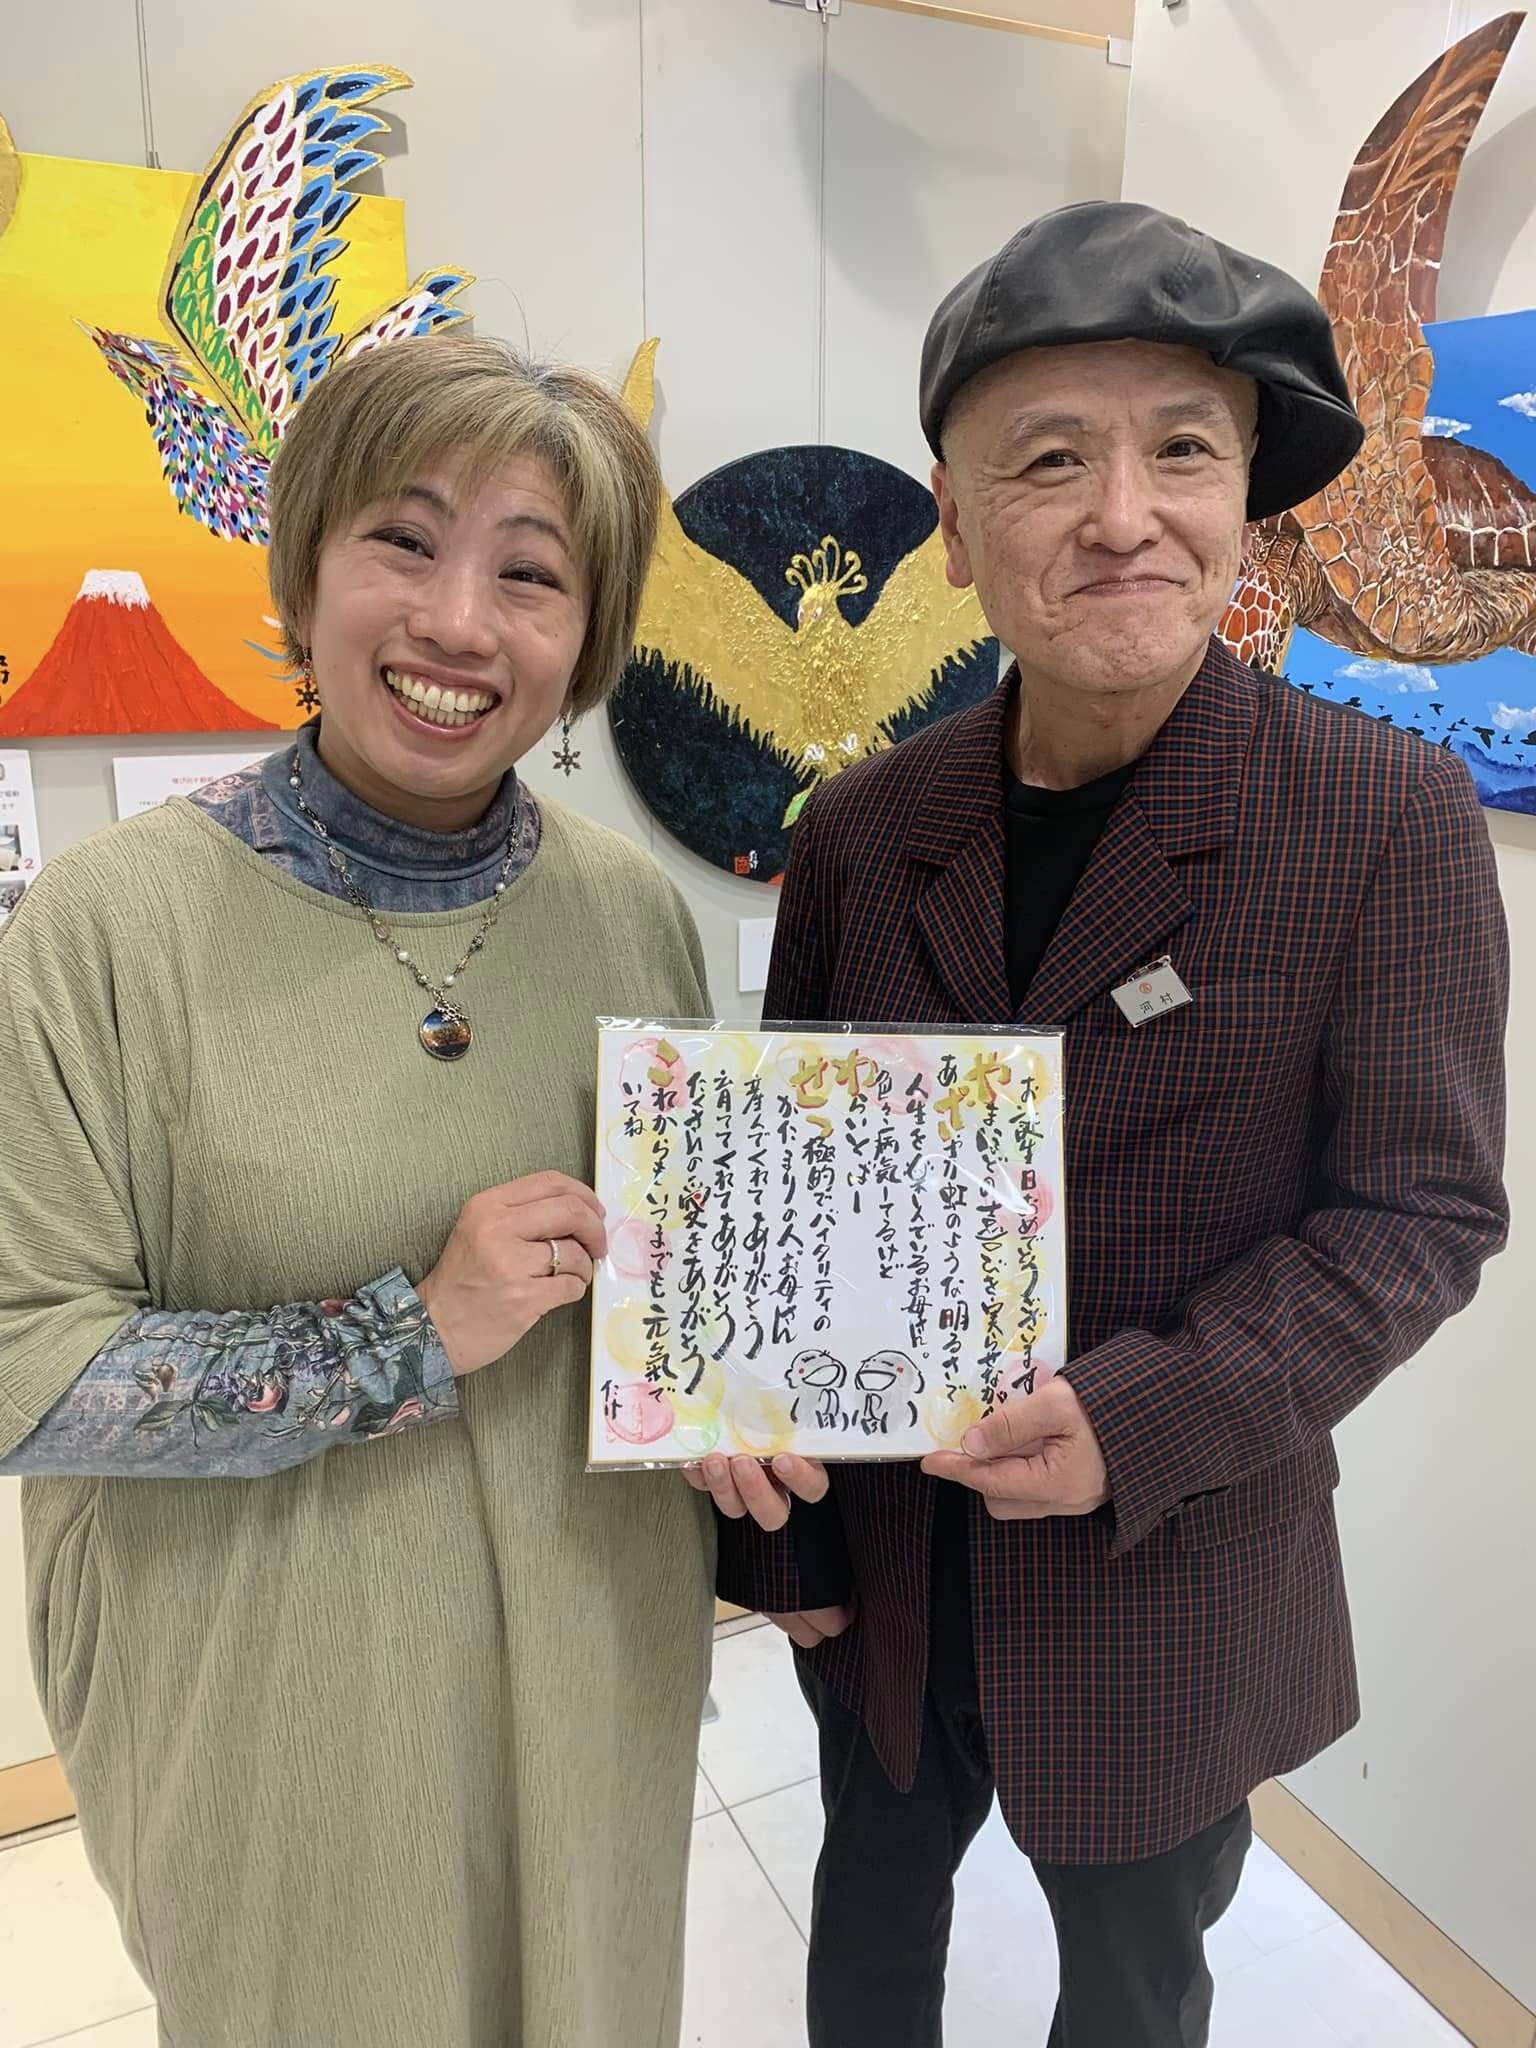 お誕生日おめでとうございます
やまほどの喜びを実らせながら
あざやか虹のような明るさで
人生を楽しんでいるお母さん。
色々病気してるけど
わらいとばし
せっ極的でバイタリティの
かたまりの人、お母さん
産んでくれてありがとう
育ててくれてありがとう
たくさんの愛をありがとう
これからもいつまでも元氣で
いてね
たけ
河村